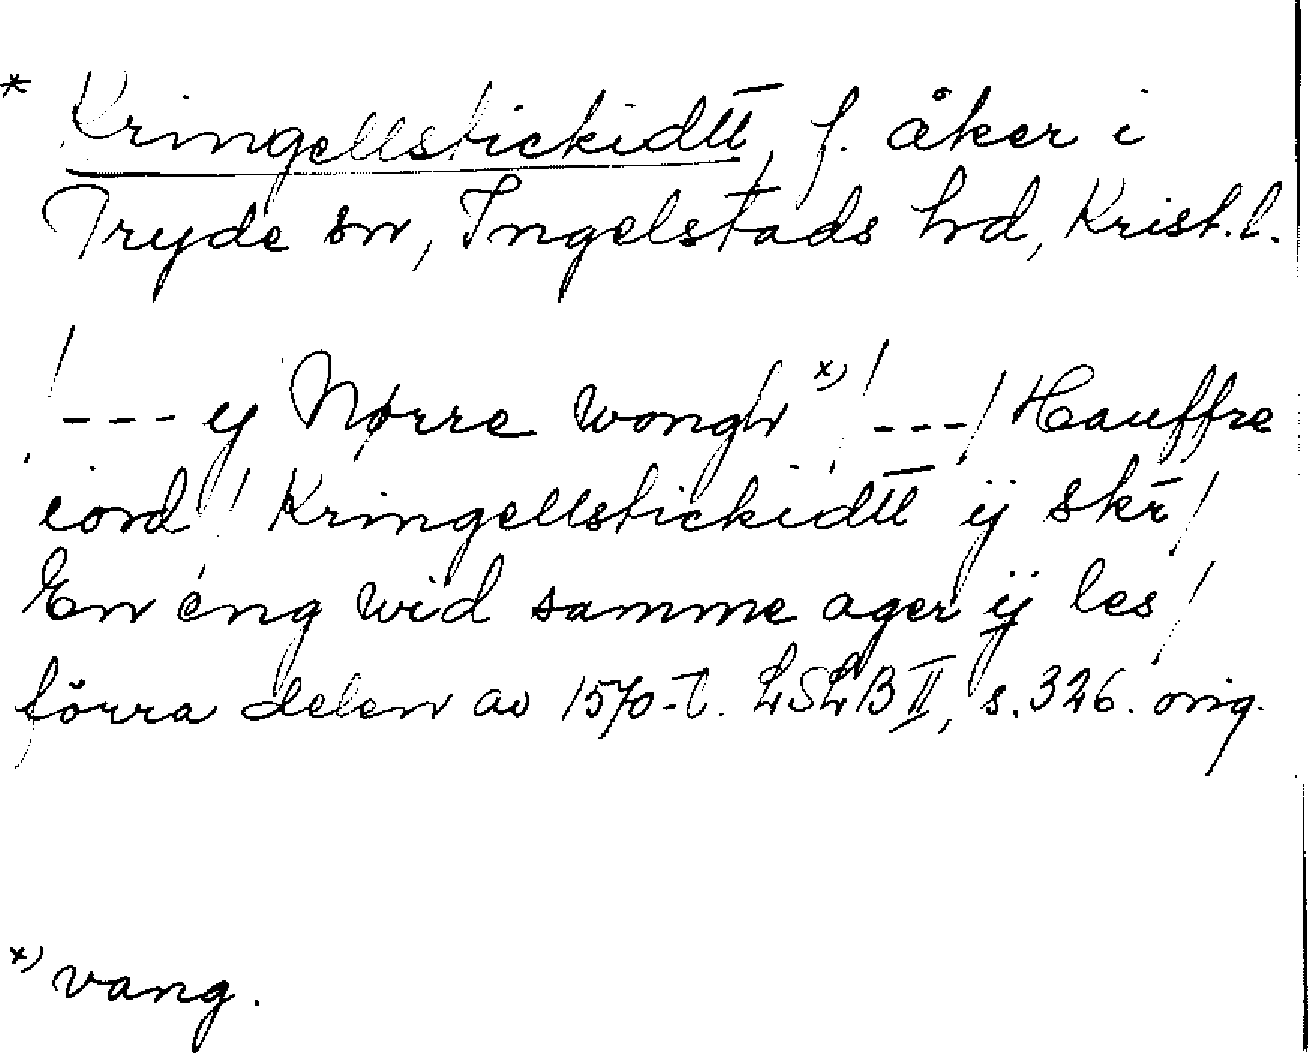 * Kringellstickidtt̅, f. åker i
Tryde sn, Ingelstads hd, Krist.l.
/--- y Nørre wongh x) /---/ Hauffre
iord / Kringellstickidtt̅ ij skr̄ /
En éng wid samme ager ij les /
förra delen av 1570-t. LSLB II, s. 326. orig.
x) vang.